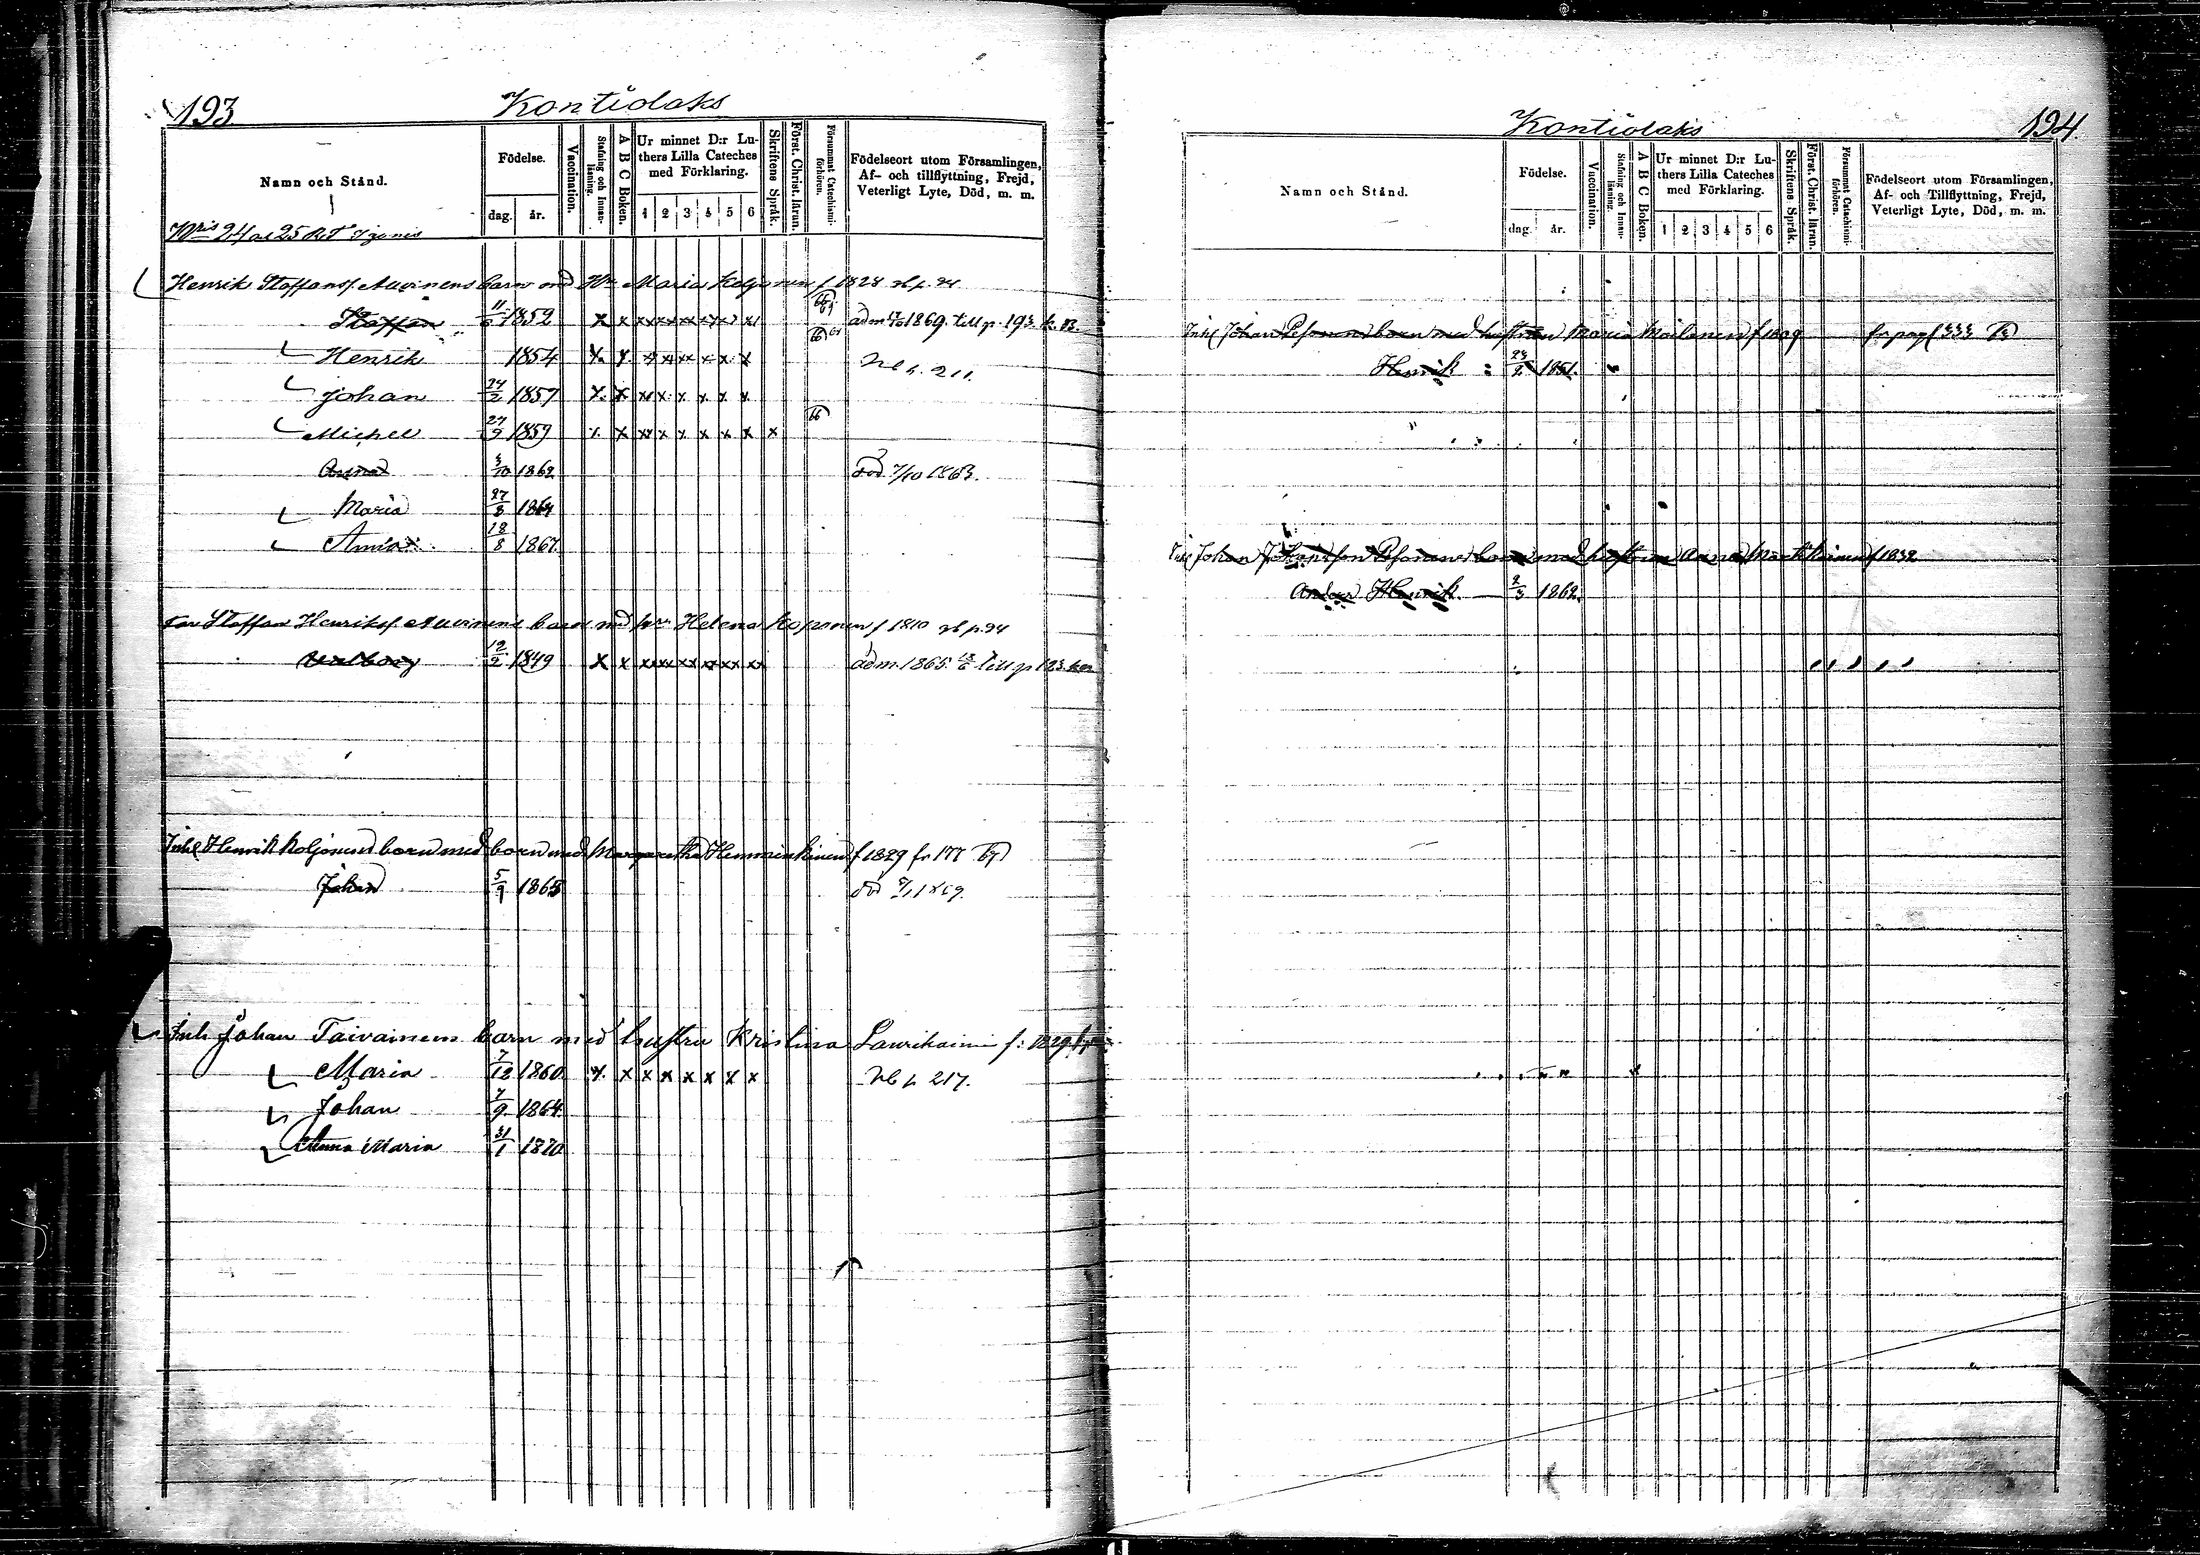 193
Kontiolaks
Namn och Stånd.
Födelse.
dag. år.
Vaccination.
Stafning och Innan-läsning.
A B C Boken.
Ur minnet D:r Lu-
thers Lilla Cateches
med Förklaring.
1 2 3 4 5 6
Skriftens Språk.
Först. Christ. läran.
Försummat Catechismi-förhören.
Födelseort utom Församlingen,
Af- och tillflyttning, Frejd,
Veterligt Lyte, Död, m. m.
24 25
Henrik Staffansf. Auvinens barn md Hu Maria Koljonen f 1828 rb p. 94
Staffan 11/6 1852 x x x x x x x x adm 1869. till p. 193
Henrik 1854 x x x x x x x x Nb p. 211
Johan 24/2 1857 x x x x x x x x
Michel 27/9 1859 x x x x x x x x x
Anna 3/10 1862 död 7/10 1863.
Maria 27/3 1864
Anna 18/8 1867.
Staffan Henriksf. Auvinens barn md hu Helena Koponen f 1810 rb p. 94
Walborg 12/2 1849 x x x x x x x x adm. 1865 till p
Inh Henrik Koljonens barn med barn med Margaretha Hemminkinen f 1829 fr 177
Johan 5/9 1865 död 1869.
Inh Johan Taivainens barn med hustru Kristina Laurikainen f: 1829
Maria 7/12 1860 x x x x x x x x Nb p 217.
Johan 7/9 1864
Anna Maria 31/1 1870
Kontiolaks
194.
Namn och Stånd.
Födelse.
dag. år.
Vaccination.
Stafning och Innan-läsning
A B C Boken.
Ur minnet D:r Lu-
thers Lilla Cateches
med Förklaring.
1 2 3 4 5 6
Skriftens Språk.
Först. Christ. läran.
Försummat Catechismi-förhören.
Födelseort utom Församlingen,
Af- och Tillflyttning, Frejd,
Veterligt Lyte, Död, m. m.
Inh Johan Pesonens barn med hustrun Maria Moilanen f 1809 fr pag 333
Henrik 23/2 1851.
Inh Johan Johansson Pesonens barn med hustrun Anna Martikainen f 1832
Anders Henrik 2/3 1862.